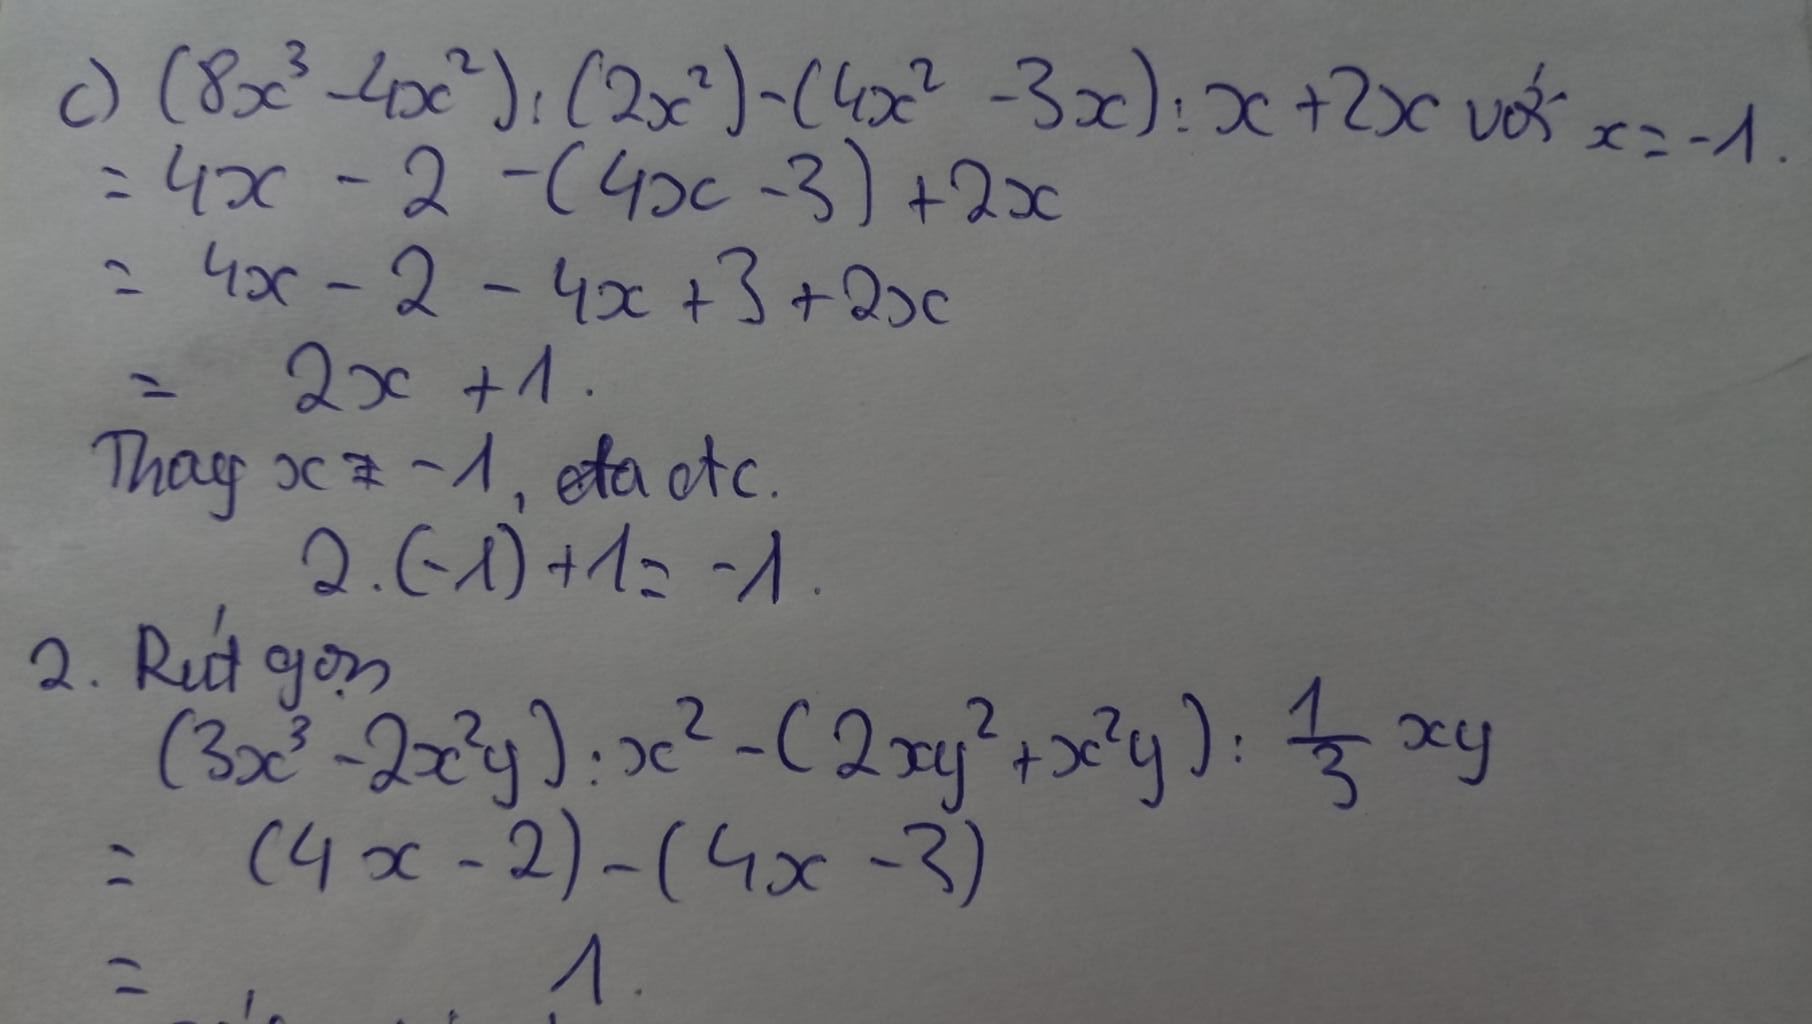 c) (8x³ - 4x²) : (2x²) - (4x² - 3x) : x + 2x với x = -1.
= 4x - 2 - (4x - 3) + 2x
= 4x - 2 - 4x + 3 + 2x
= 2x + 1.
Thay x = -1, ta đc.
2.(-1) + 1 = -1.
2. Rút gọn
(3x³ - 2x²y) : x² - (2xy² + x²y) : 1/3 xy
= (4x - 2) - (4x - 3)
= 1.